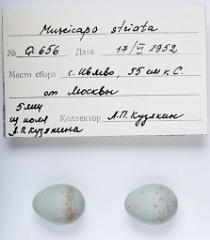 Muscicapa striata
№ Q.656 Дата 17/VI 1952
Место сбора с. Ивлево, 55 км к С.
от Москвы
5 яиц
из колл. Коллектор А.П. Кузякин
А.П. Кузякина